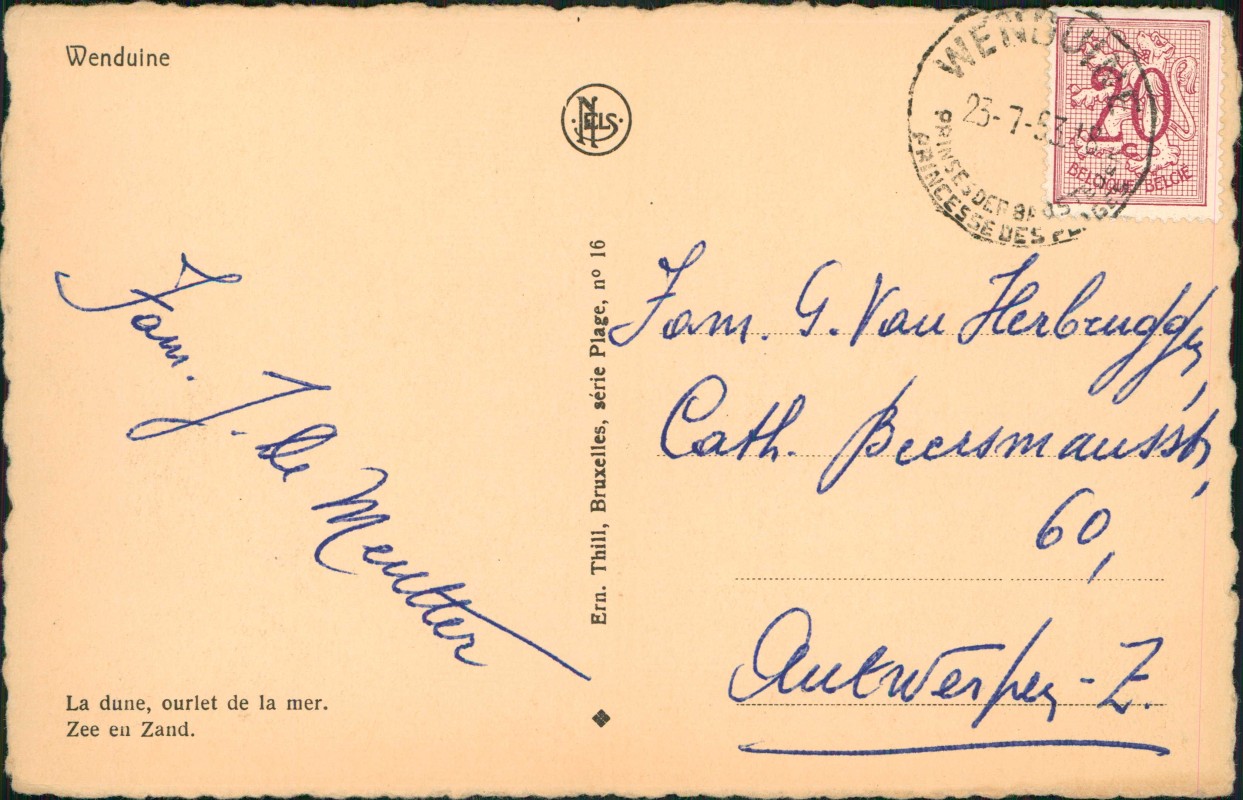 Wenduine
NELS
WENDUINE
23-7-53
PRINSES DER BADSTEDEN
PRINCESSE DES PLAGES
20
c
BELGIQUE-BELGIË
Fam.
J. De Meutter
Ern. Thill, Bruxelles, série Plage, nº 16
Fam. G. Van Herbruggen,
Cath. Beersmansstr,
60,
Antwerpen-Z.
La dune, ourlet de la mer.
Zee en Zand.